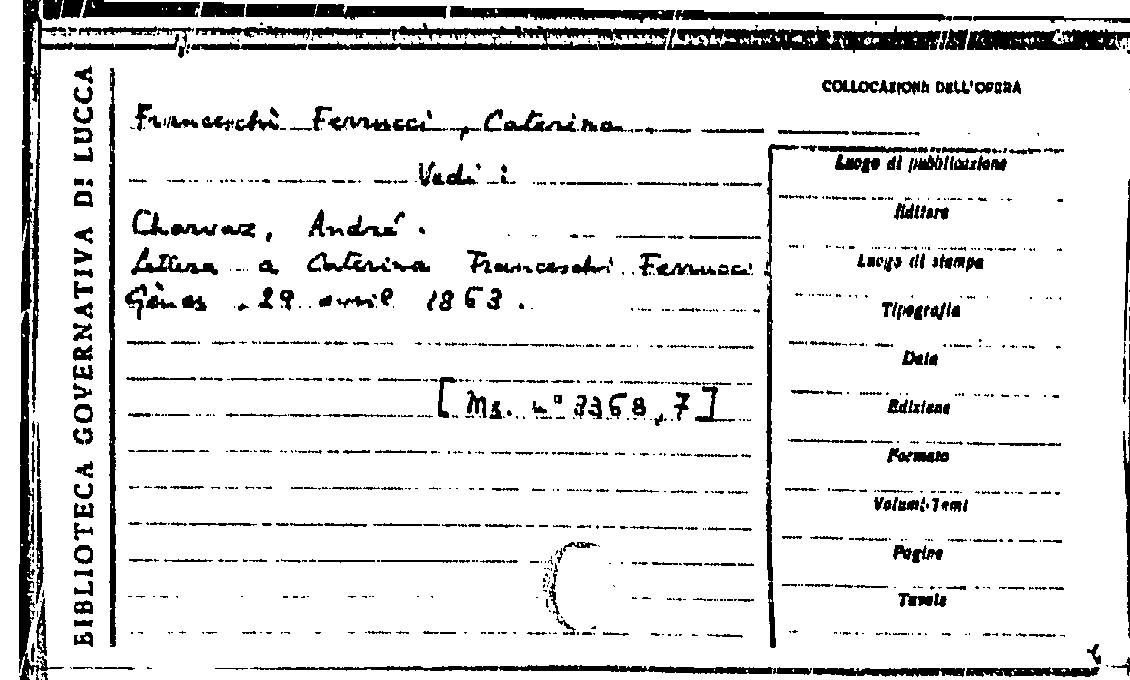 BIBLIOTECA GOVERNATIVA DI LUCCA
COLLOCAZIONE DELL'OPERA
Franceschi Ferrucci, Caterina
Vedi:
Charvaz, André.
Lettera a Caterina Franceschi Ferrucci.
Gênes, 29 avril 1863.
[Ms. nº 3368,7]
Luogo di pubblicazione
Editore
Luogo di stampa
Tipografia
Data
Edizione
Formato
Volumi-Tomi
Pagine
Tavole